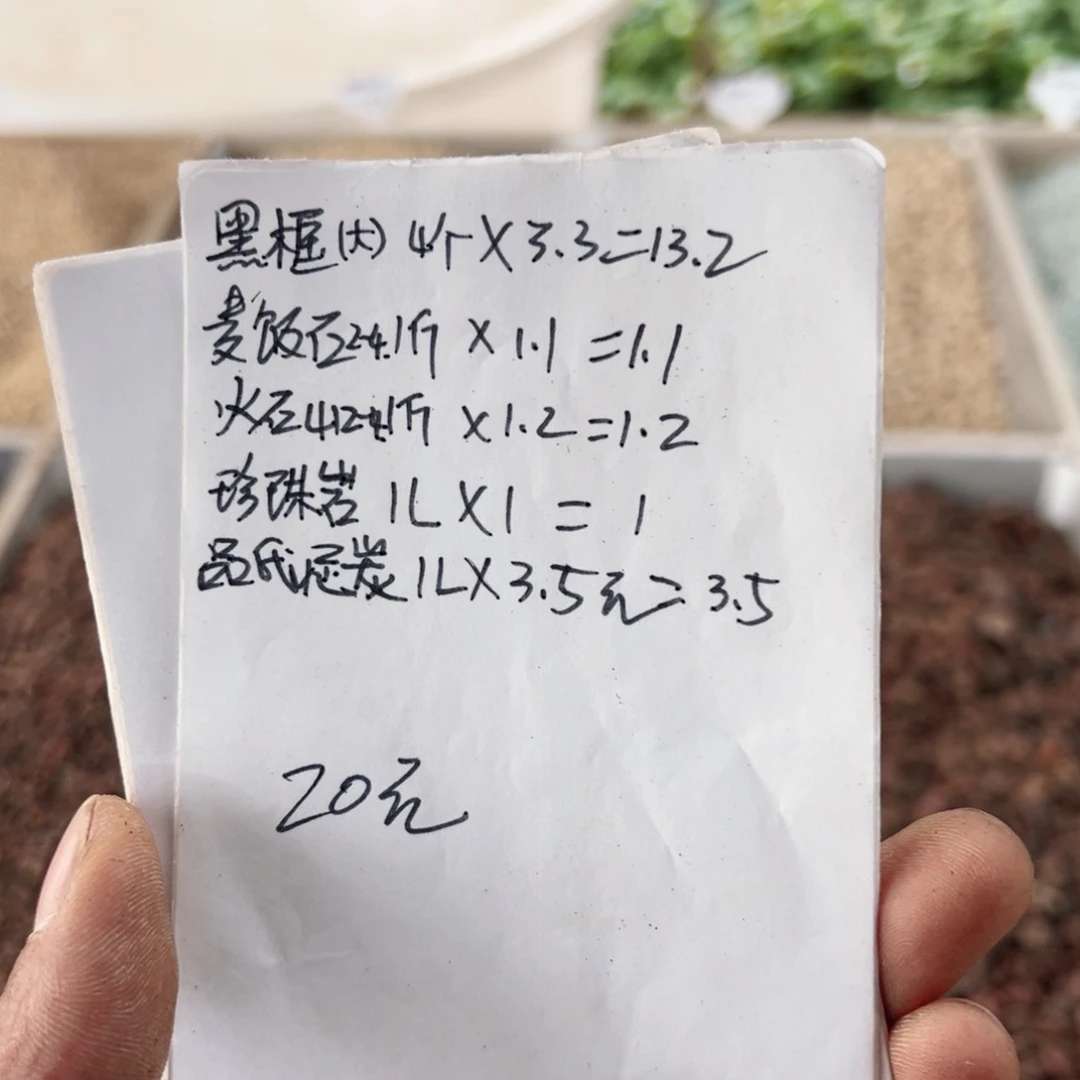 黑框(大) 4个X3.3=13.2
麦饭石2-4.1斤 X 1.1 =1.1
火石 1斤 X1.2=1.2
珍珠岩 1L X1 = 1
品氏泥炭 1LX3.5元=3.5
20元